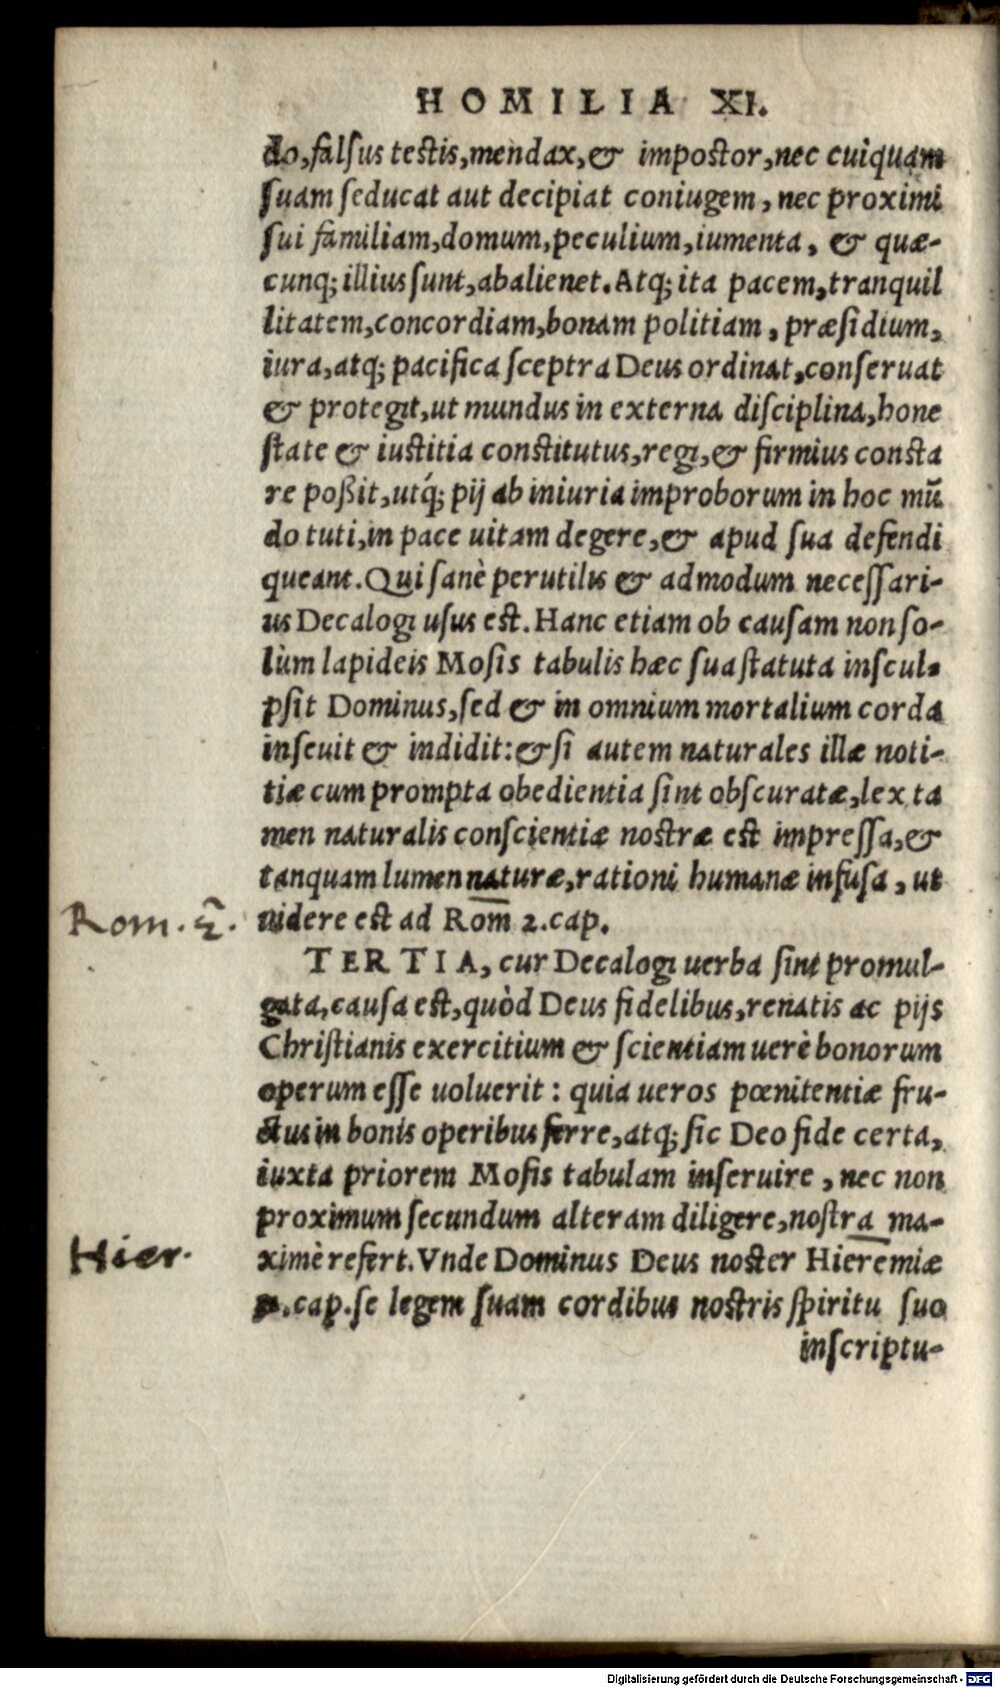 HOMILIA XI.
do, falsus testis, mendax, & impostor, nec cuiquam
suam seducat aut decipiat coniugem, nec proximi
sui familiam, domum, peculium, iumenta, & quæ-
cunq; illius sunt, abalienet. Atq; ita pacem, tranquil
litatem, concordiam, bonam politiam, præsidium,
iura, atq; pacifica sceptra Deus ordinat, conseruat
& protegit, ut mundus in externa disciplina, hone
state & iustitia constitutus, regi, & firmius consta
re poßit, utq́; pij ab iniuria improborum in hoc mū
do tuti, in pace uitam degere, & apud sua defendi
queant. Qui sanè perutilis & admodum necessari-
us Decalogi usus est. Hanc etiam ob causam non so-
lùm lapideis Mosis tabulis hæc sua statuta inscul-
psit Dominus, sed & in omnium mortalium corda
inseuit & indidit: & si autem naturales illæ noti-
tiæ cum prompta obedientia sint obscuratæ, lex ta
men naturalis conscientiæ nostræ est impressa, &
tanquam lumen naturæ, rationi humanæ infusa, ut
uidere est ad Rom 2. cap.
Rom. 2.
TERTIA, cur Decalogi uerba sint promul-
gata, causa est, quòd Deus fidelibus, renatis ac pijs
Christianis exercitium & scientiam uerè bonorum
operum esse uoluerit: quia ueros pœnitentiæ fru-
ctus in bonis operibus ferre, atq; sic Deo fide certa,
iuxta priorem Mosis tabulam inseruire, nec non
proximum secundum alteram diligere, nostra ma-
ximè refert. Vnde Dominus Deus noster Hieremiæ
Hier.
cap. se legem suam cordibus nostris spiritu suo
inscriptu-
Digitalisierung gefördert durch die Deutsche Forschungsgemeinschaft - DFG